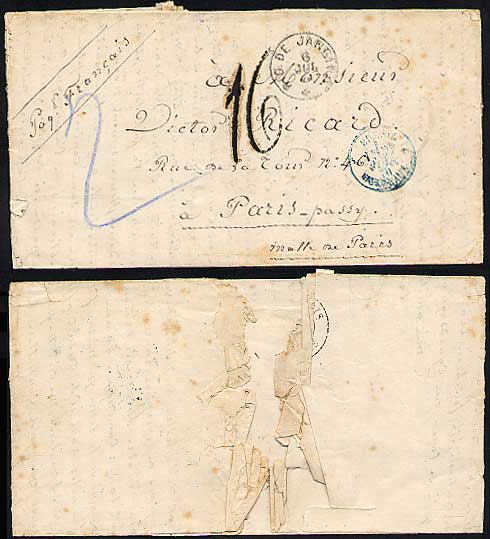 Paq. Français
RIO DE JANEIRO
6
JUL
à Monsieur
16
2
Victor Ricard
Rue de la Tour Nº 46
à Paris-passy.
Malle de Paris